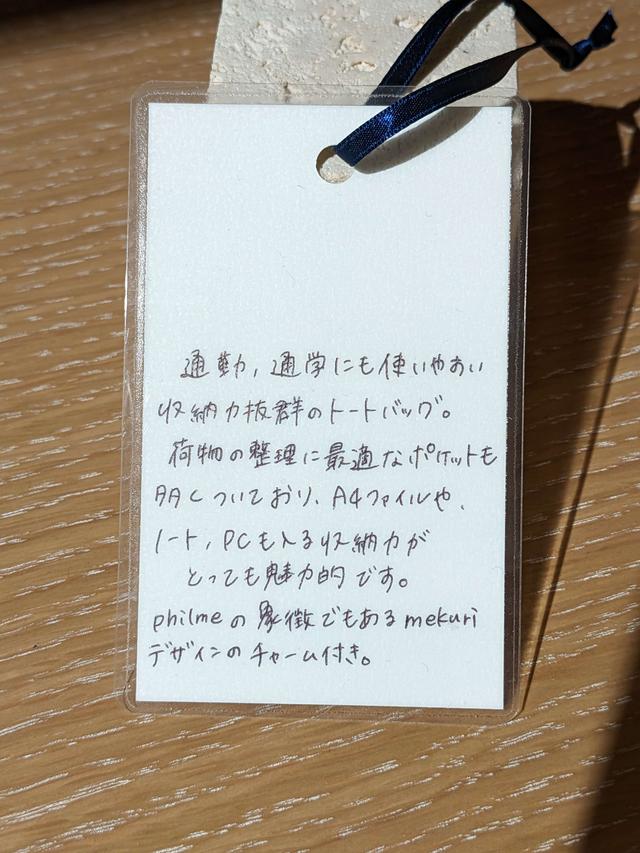 通勤，通学にも使いやすい
収納力抜群のトートバッグ。
荷物の整理に最適なポケットも
多くついており、A4ファイルや、
ノート，PCも入る収納力が
とっても魅力的です。
philmeの象徴でもあるmekuri
デザインのチャーム付き。